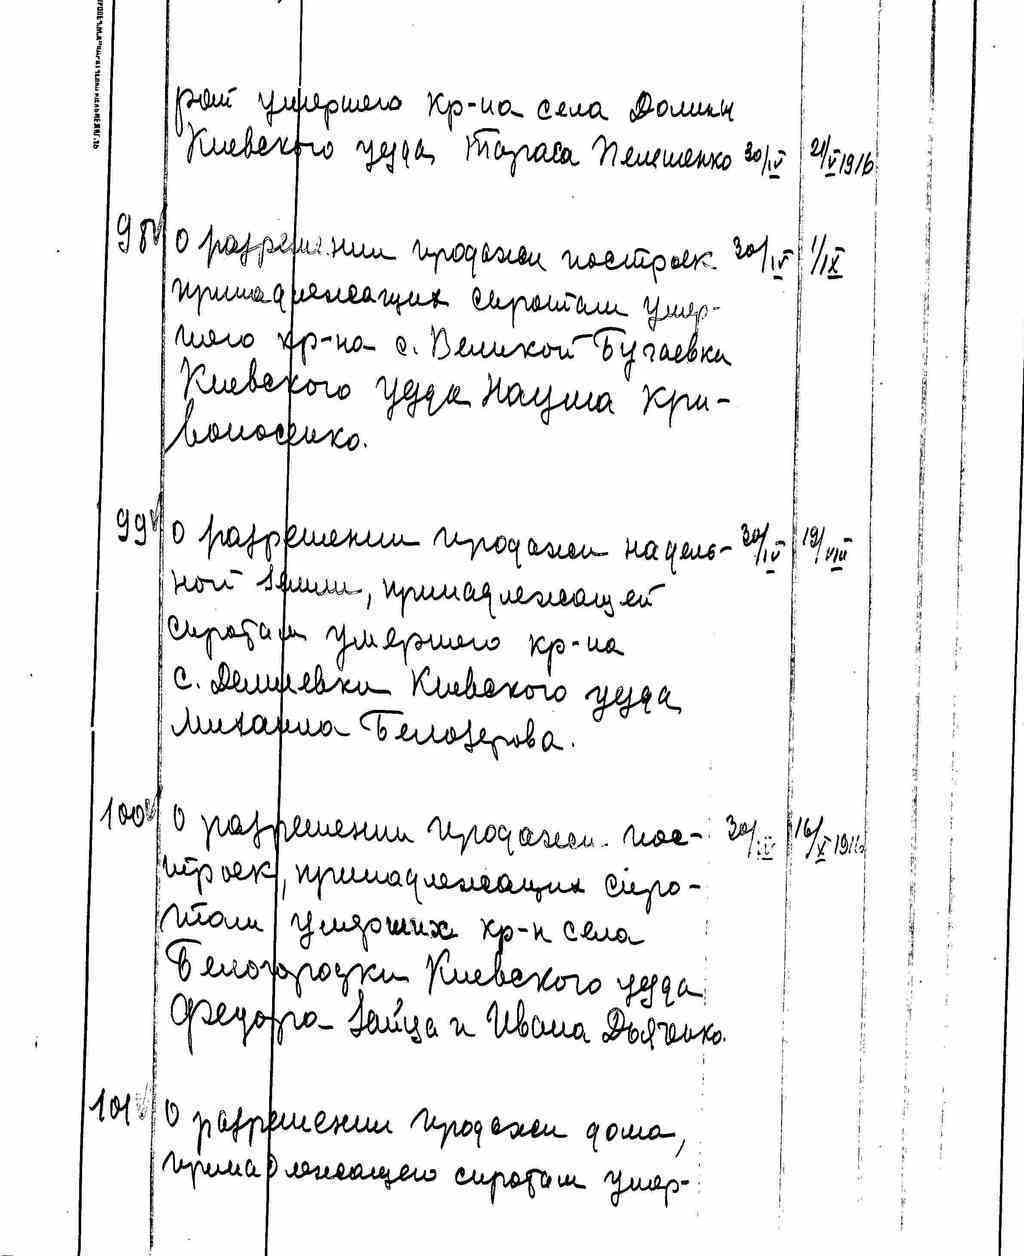 рот умершего кр-на села Долины
Киевского уезда Тараса Пелешенко 30/IV 21/V 1916
98 О разрешении продажи построек 30/IV 1/IX
принадлежащих сиротам умер-
шего кр-на с. Великой Бугаевки
Киевского уезда Наума Кри-
воносенко.
99 О разрешении продажи надель- 30/IV 19/VIII
ной земли, принадлежащей
сиротам умершего кр-на
с. Демиевки Киевского уезда
Михаила Белозерова.
100 О разрешении продажи пос- 30/IV 16/X 1916
троек, принадлежащих сиро-
там умерших кр-н села
Белогородки Киевского уезда
Федора Зайца и Ивана Дьяченко.
101 О разрешении продажи дома,
принадлежащего сиротам умер-